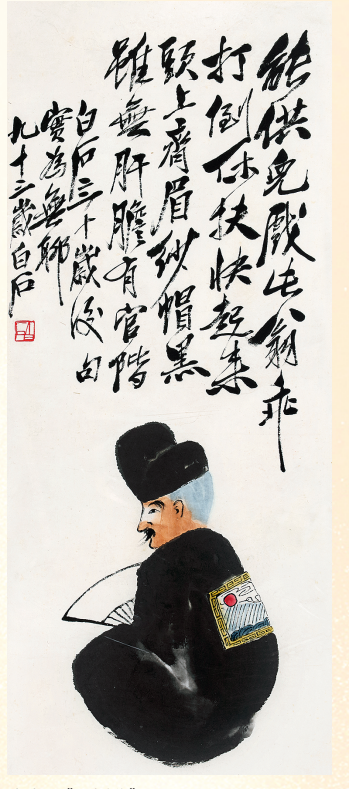 能供兒戲此翁乖
打倒休扶快起来
頭上齊眉紗帽黑
雖無肝膽有官階
白石三十歲後句
實為無聊
九十三歲白石